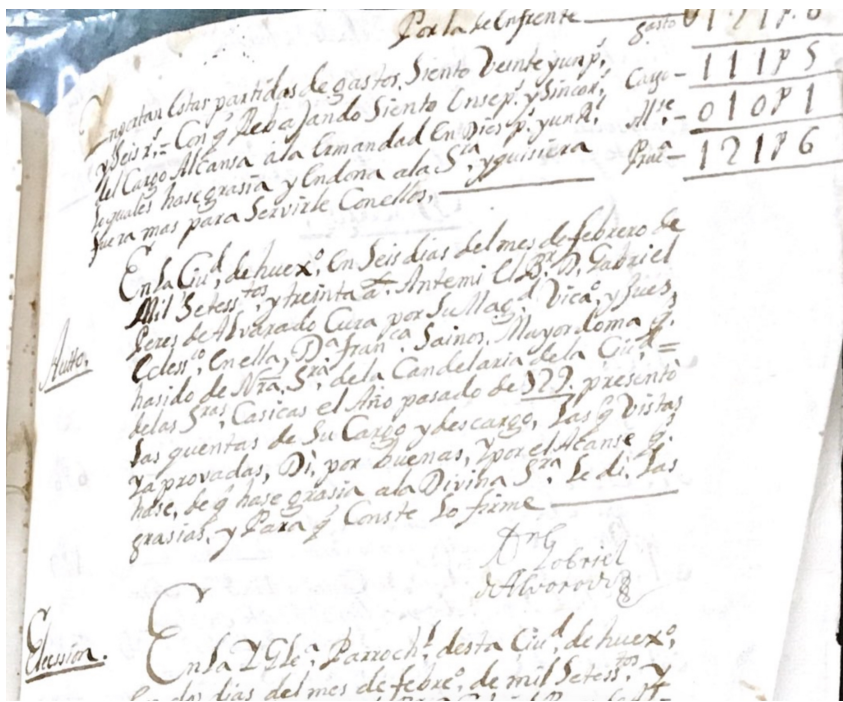 Por la de Enfrente gasto 0121p.6
Ynportan Estas partidas de gastos, Siento Veinte y un ps. Cargo - 111p5
y Seis rs. = Con q̃ Rebajando Siento Onse ps. y Sincors. Alse. - 010p1
del Cargo Alcansa a la Ermandad En Dies ps. y un Rl. Prue. - 121p6
lo quales hase grasia y Endona a la Sra. y quisiera
fuera mas para Servirle Con ellos.
En la Ciud. de huexo. En Seis dias del mes de febrero de
Mil Setesstos. y treinta as. Ante mi El Br. D. Gabriel
Peres de Alvarado Cura por Su Magd. Vico. y Jues
Autto. Ecclesso. En ella, Da. Franca. Sainos, Mayordoma q.
hasido de Nra. Sra. de la Candelaria de la Ciud. =
de las Sras. Casicas el Año pasado de 729. presentò
las quentas de Su Cargo y descargo, las q̃ Vistas
y aprovadas, Di, por buenas, y por el Alcanse q.
hase, de q̃ hase grasia a la Divina Sra. Le di las
grasias, y Para q̃ Conste Lo firme
Gabriel
de Alvarado
Elecsion. En la YGla. Parrochl. desta Ciud. de huexo.
En dos dias del mes de febro. de mil Setesstos. y